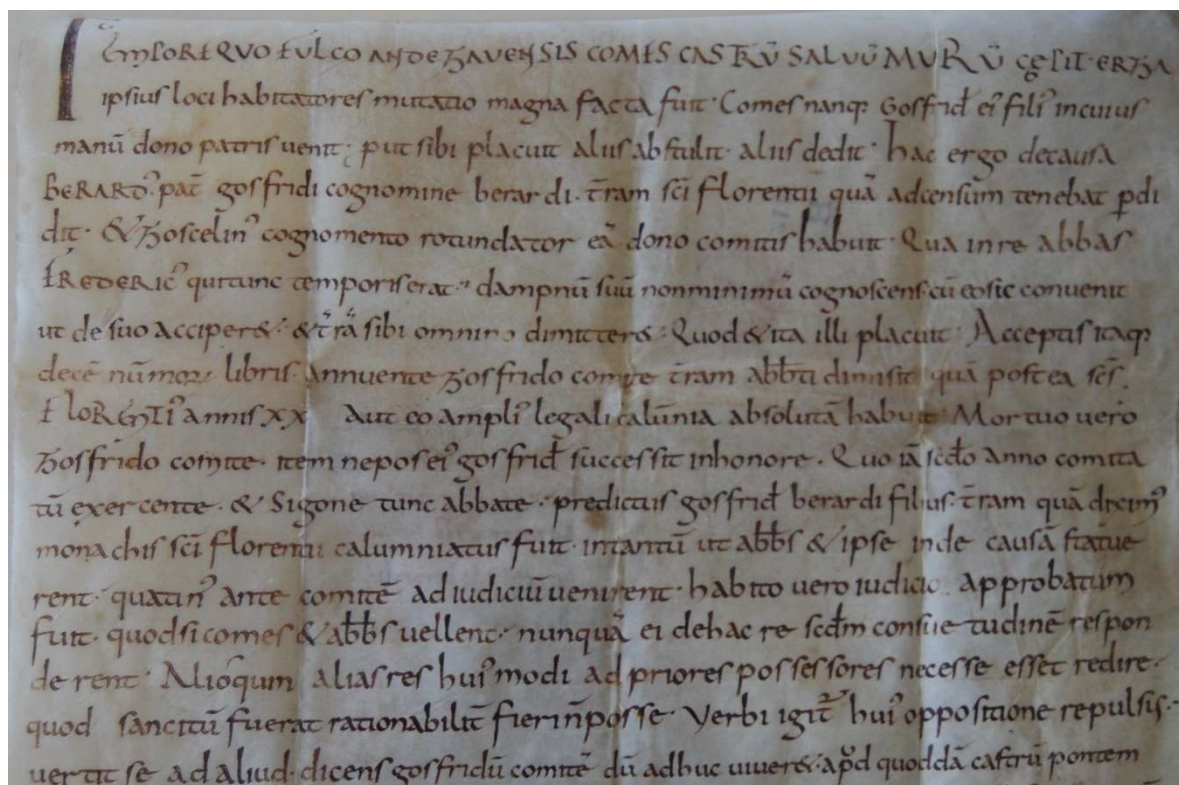 IEMPORE QUO FULCO ANDEGAVENSIS COMES CASTRŪ SALVŪ MURŪ CEPIT· ERGA
ipsius loci habitatores mutatio magna facta fuit· Comes nanq; Gosfrid ei' fili' incuius
manū dono patris venit· p̄ut sibi placuit aliis abstulit· aliis dedit· hac ergo decausa
BERARD' pat̄ gosfridi cognomine berardi· t̄ram sc̄i florentii quā adcensum tenebat ꝑdi
dit· & Goscelin' cognomento rotundator eā dono comitis habuit· Qua inre abbas
FREDERIC' quitunc temporis erat· dampnū suū nonminimū cognoscens· cū eosic convenit
ut de suo acciper&· & t̄rā sibi omnino dimitter&· Quod & ita illi placuit· Acceptis itaq;
decē nūmoꝝ libris· Annuente gosfrido comite t̄ram abb̄ti dimisit quā postea sc̄s
FLORENTI' annis XX Aut eo ampli' legali calūnia absolutā habuit· Mortuo vero
Gosfrido comite· item nepos ei' gosfrid successit inhonore· Quo iā sc̄do anno comita
tū exercente· & Sigone tunc abbate· predictus gosfrid berardi filius· t̄ram quā dixim'
monachis sc̄i florentii calumniatus fuit· intantū ut abb̄s & ipse inde causā statue
rent· quatin' ante comitē ad iudiciū venirent· habito vero iudicio approbatum
fuit· quodsi comes & abb̄s vellent· nunquā ei dehac re sc̄dm consuetudinē respon
derent· Alioquin alias res hui'modi ad priores possessores necesse esset redire·
quod sancitū fuerat rationabilit̄ fieri n̄ posse· Verbi igit̄ hui' oppositione repulsis·
vertit se ad aliud· dicens gosfridū comitē dū adhuc viver&· apud quoddā castrū pontem